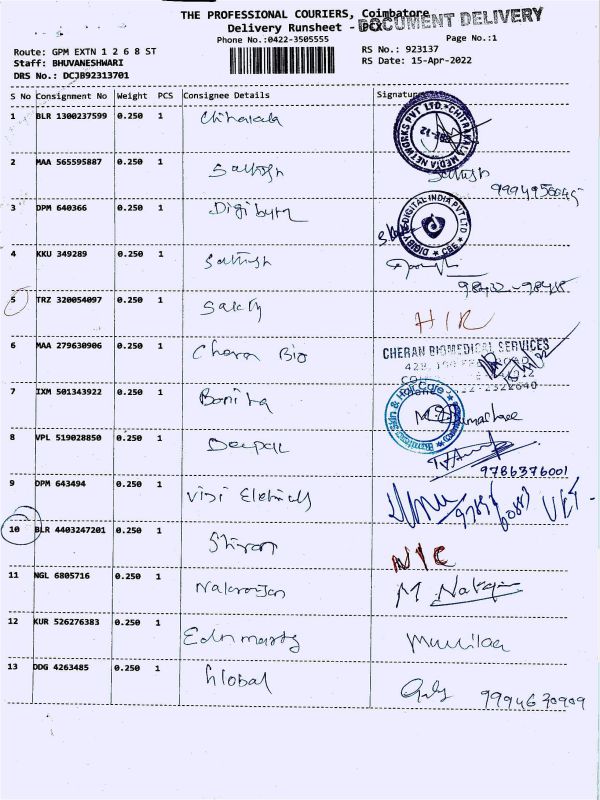 THE PROFESSIONAL COURIERS, Coimbatore
Delivery Runsheet - DOX
DOCUMENT DELIVERY
Phone No.:0422-3505555
Page No.:1
Route: GPM EXTN 1 2 6 8 ST
RS No.: 923137
Staff: BHUVANESHWARI
RS Date: 15-Apr-2022
DRS No.: DCJB92313701
S No Consignment No Weight PCS Consignee Details Signature
1 BLR 1300237599 0.250 1 Chitrakala
CHITRAKALA MEDIA NETWORKS PVT LTD.
CBE-12
2 MAA 565595887 0.250 1 Sathish Sathish
3 DPM 640366 0.250 1 Digibyte
DIGITAL INDIA PVT LTD
CBE
4 KKU 349289 0.250 1 Sathish
5 TRZ 320054097 0.250 1 H/R
6 MAA 279630906 0.250 1 Cheran Bio
CHERAN BIOMEDICAL SERVICES
7 IXM 501343922 0.250 1
Skin & Hair Care
8 VPL 519028850 0.250 1 Deepak
9786376001
9 DPM 643494 0.250 1
10 BLR 4403247201 0.250 1 N/C
11 NGL 6805716 0.250 1 Natarajan M
12 KUR 526276383 0.250 1
13 DDG 4263485 0.250 1 Global
9994630909